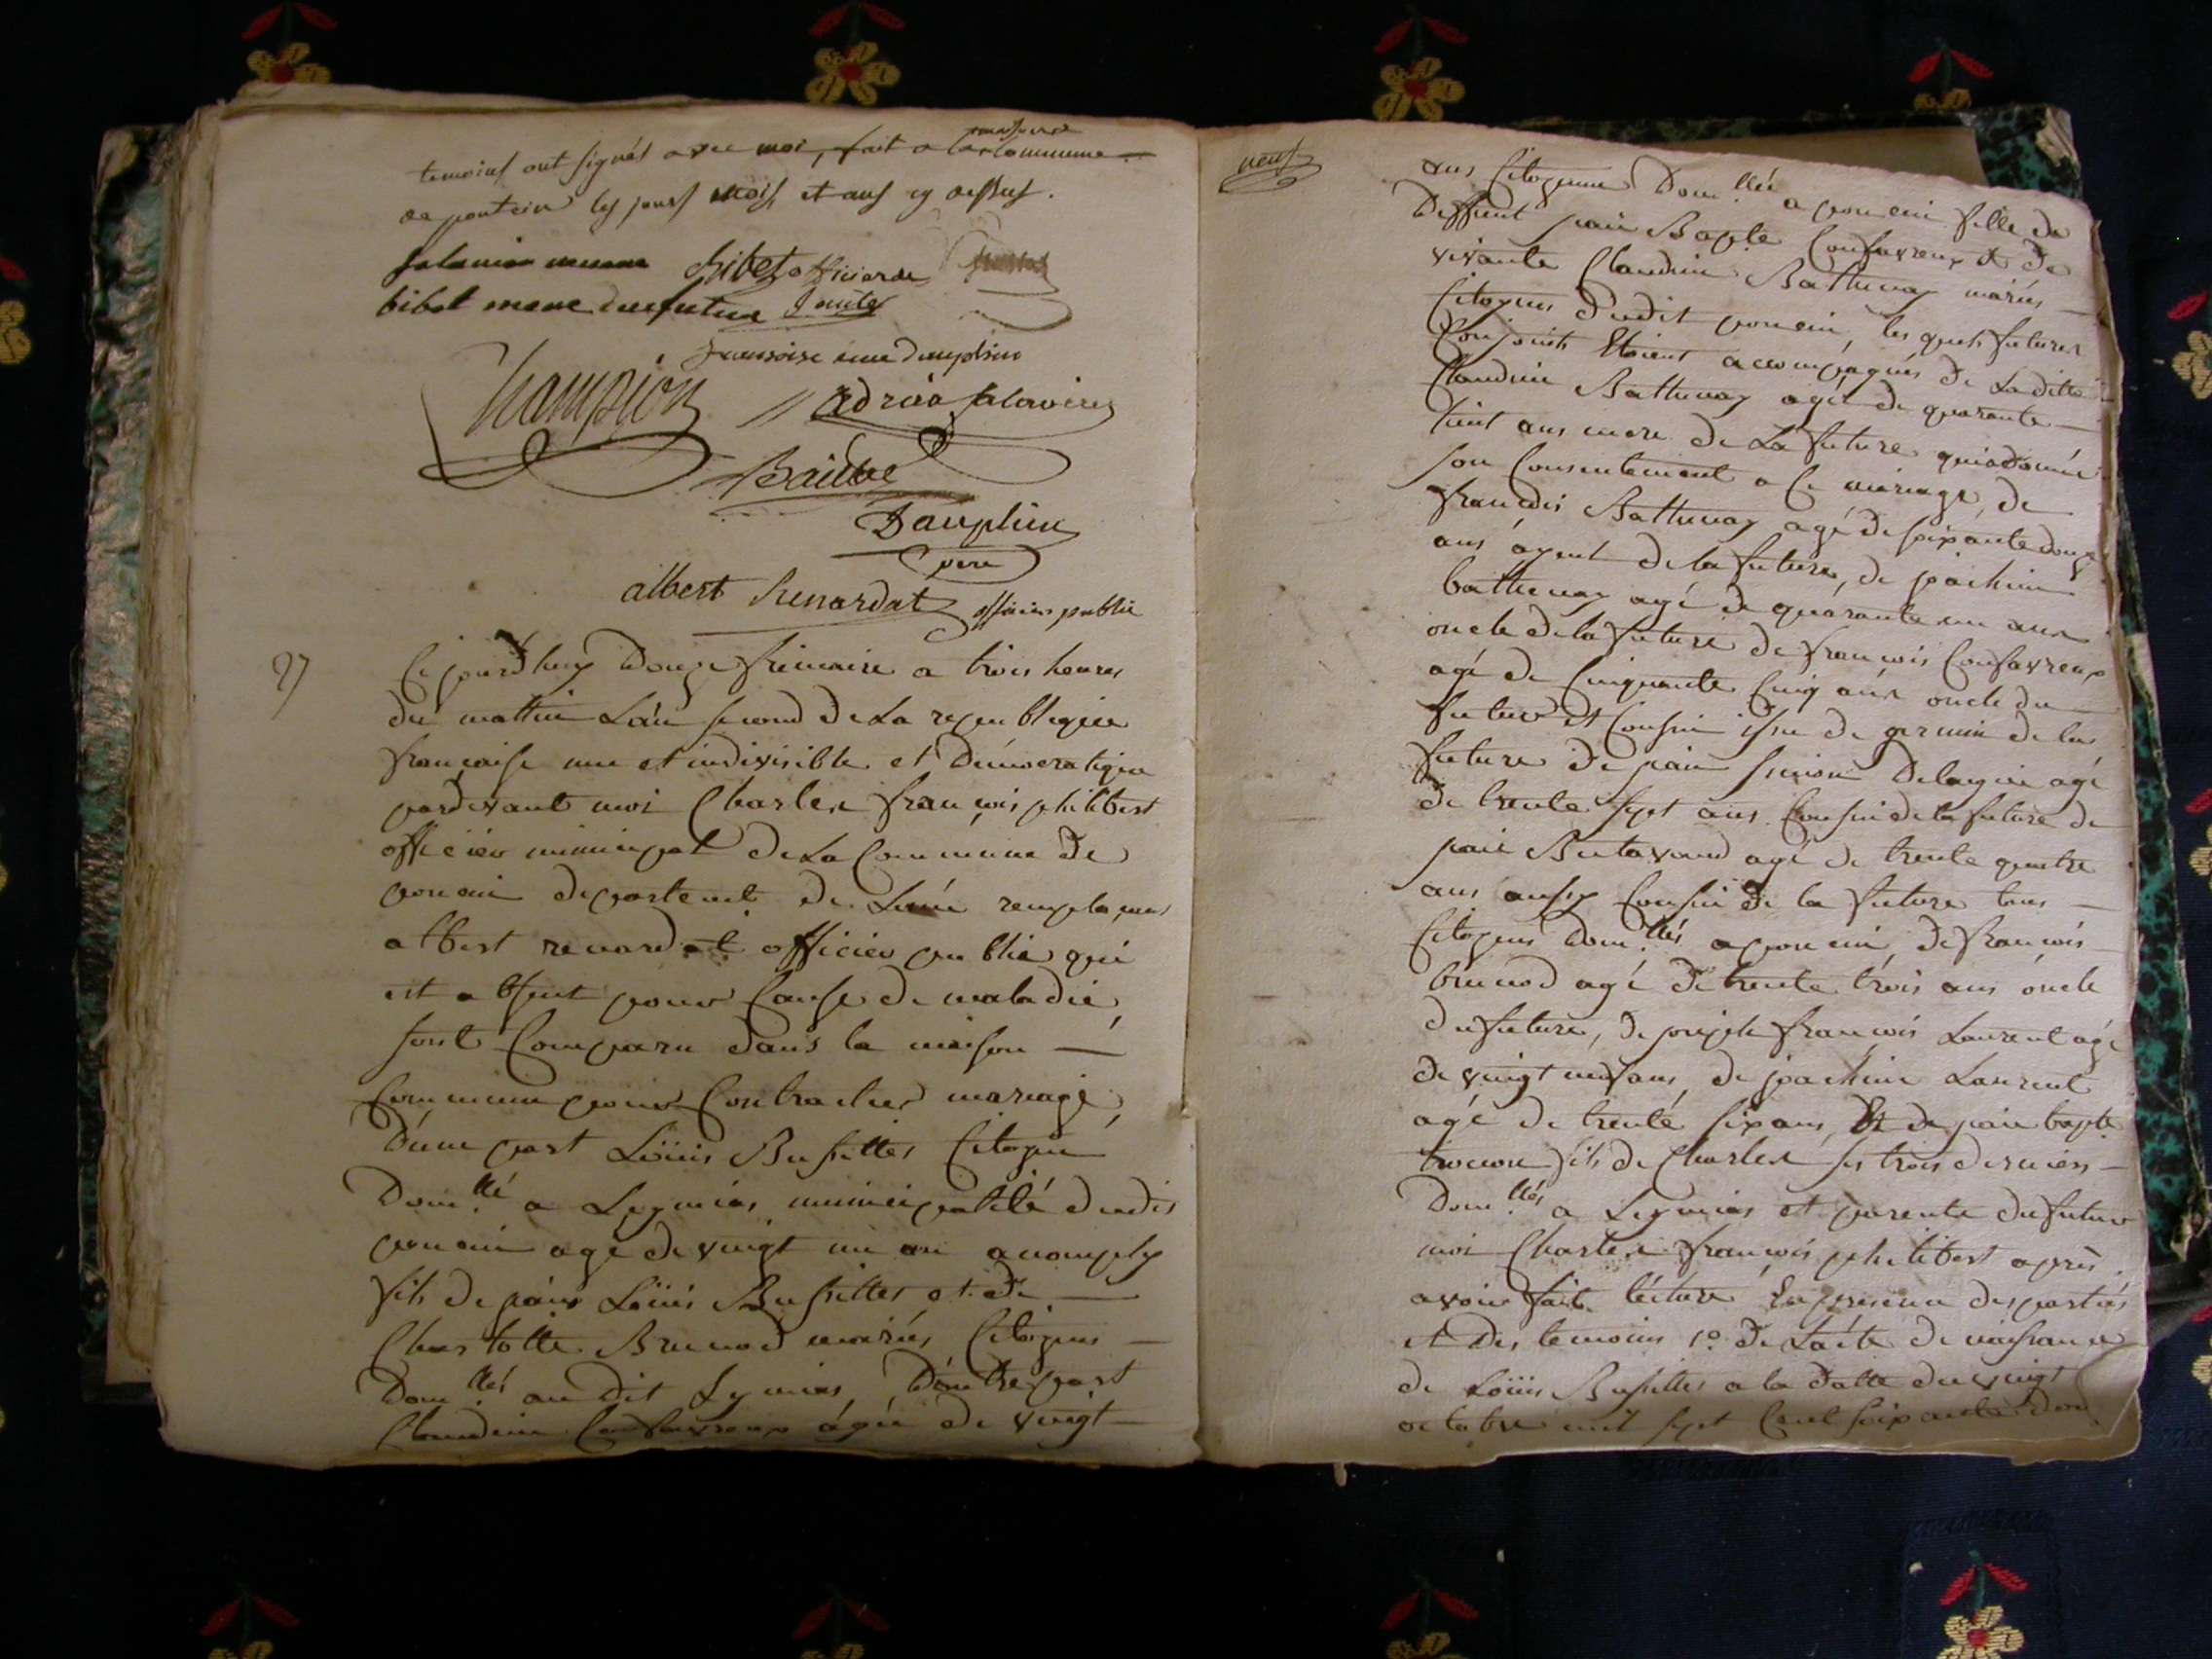 maison
temoins ont signés avec moi, fait a la Commune
de poncin les jours mois et ans cy dessus.
salavier Ribet officier de
bibet mere du futur Santé
francoise dauphin
Champion Adrien salavier
Baillie
Dauphin
pere
albert Renardat officier public
27
Cejourdhuy Douze frimaire a trois heures
du mattin Lan second de La republique
francaise une et indivisible et Démocratique
pardevant moi Charles francois philibert
officier municipal de La Commune de
poncin département de Lain remplaçant
albert renardat officier public qui
est absent pour Cause de maladie,
sont Comparu dans la maison
Commune pour Contracter mariage,
D'une part Loüis Bussilllet Citoyen
Dom.llié a Leymiat municipalité dudit
poncin agé de vingt un an acomply
fils de Loüis Bussillet et de
Charlotte Brunod mariés Citoyens
Dom.lliés audit Leymiat, D'autre part
Claudine Confavreux agée de vingt
neuf
ans Citoyenne Dom.lliée a poncin fille de
Deffunt jean Bapte Confavreux & de
vivante Claudine Bathenay mariés
Citoyens Dudit poncin, les quels futurs
Conjoints Etoient accompagnés de Laditte
Claudine Bathenay agée de quarante
huit ans mere de La future qui a donnée
son Consentement a Ce mariage, de
francois Bathenay agé de soixante douze
ans ayeul de la future, de joachim
bathenay agé de quarante un ans
oncle de la future de francois Confavreux
agé de Cinquante Cinq ans oncle du
futur et Cousin issu de germain de la
future de jean Delagrie agé
de trente sept ans Cousin de la future de
jean Butavand agé de trente quatre
ans aussy Cousin de la future tous
Citoyens Dom.lliés a poncin, de francois
brunod agé de trente trois ans oncle
du future, de joseph francois Laurent agé
de vingt neuf ans, de joachim Laurent
agé de trente six ans, & de jean bapte
fils de Charles les trois derniers
Dom.lliés a Leymiat et parents du futur
moi Charles francois philibert apres
avoir fait lecture En presence des parties
et des temoins 1o. de Lacte de naissance
de Loüis Bussillet a la datte du vingt
octobre mil sept Cent soixante douze